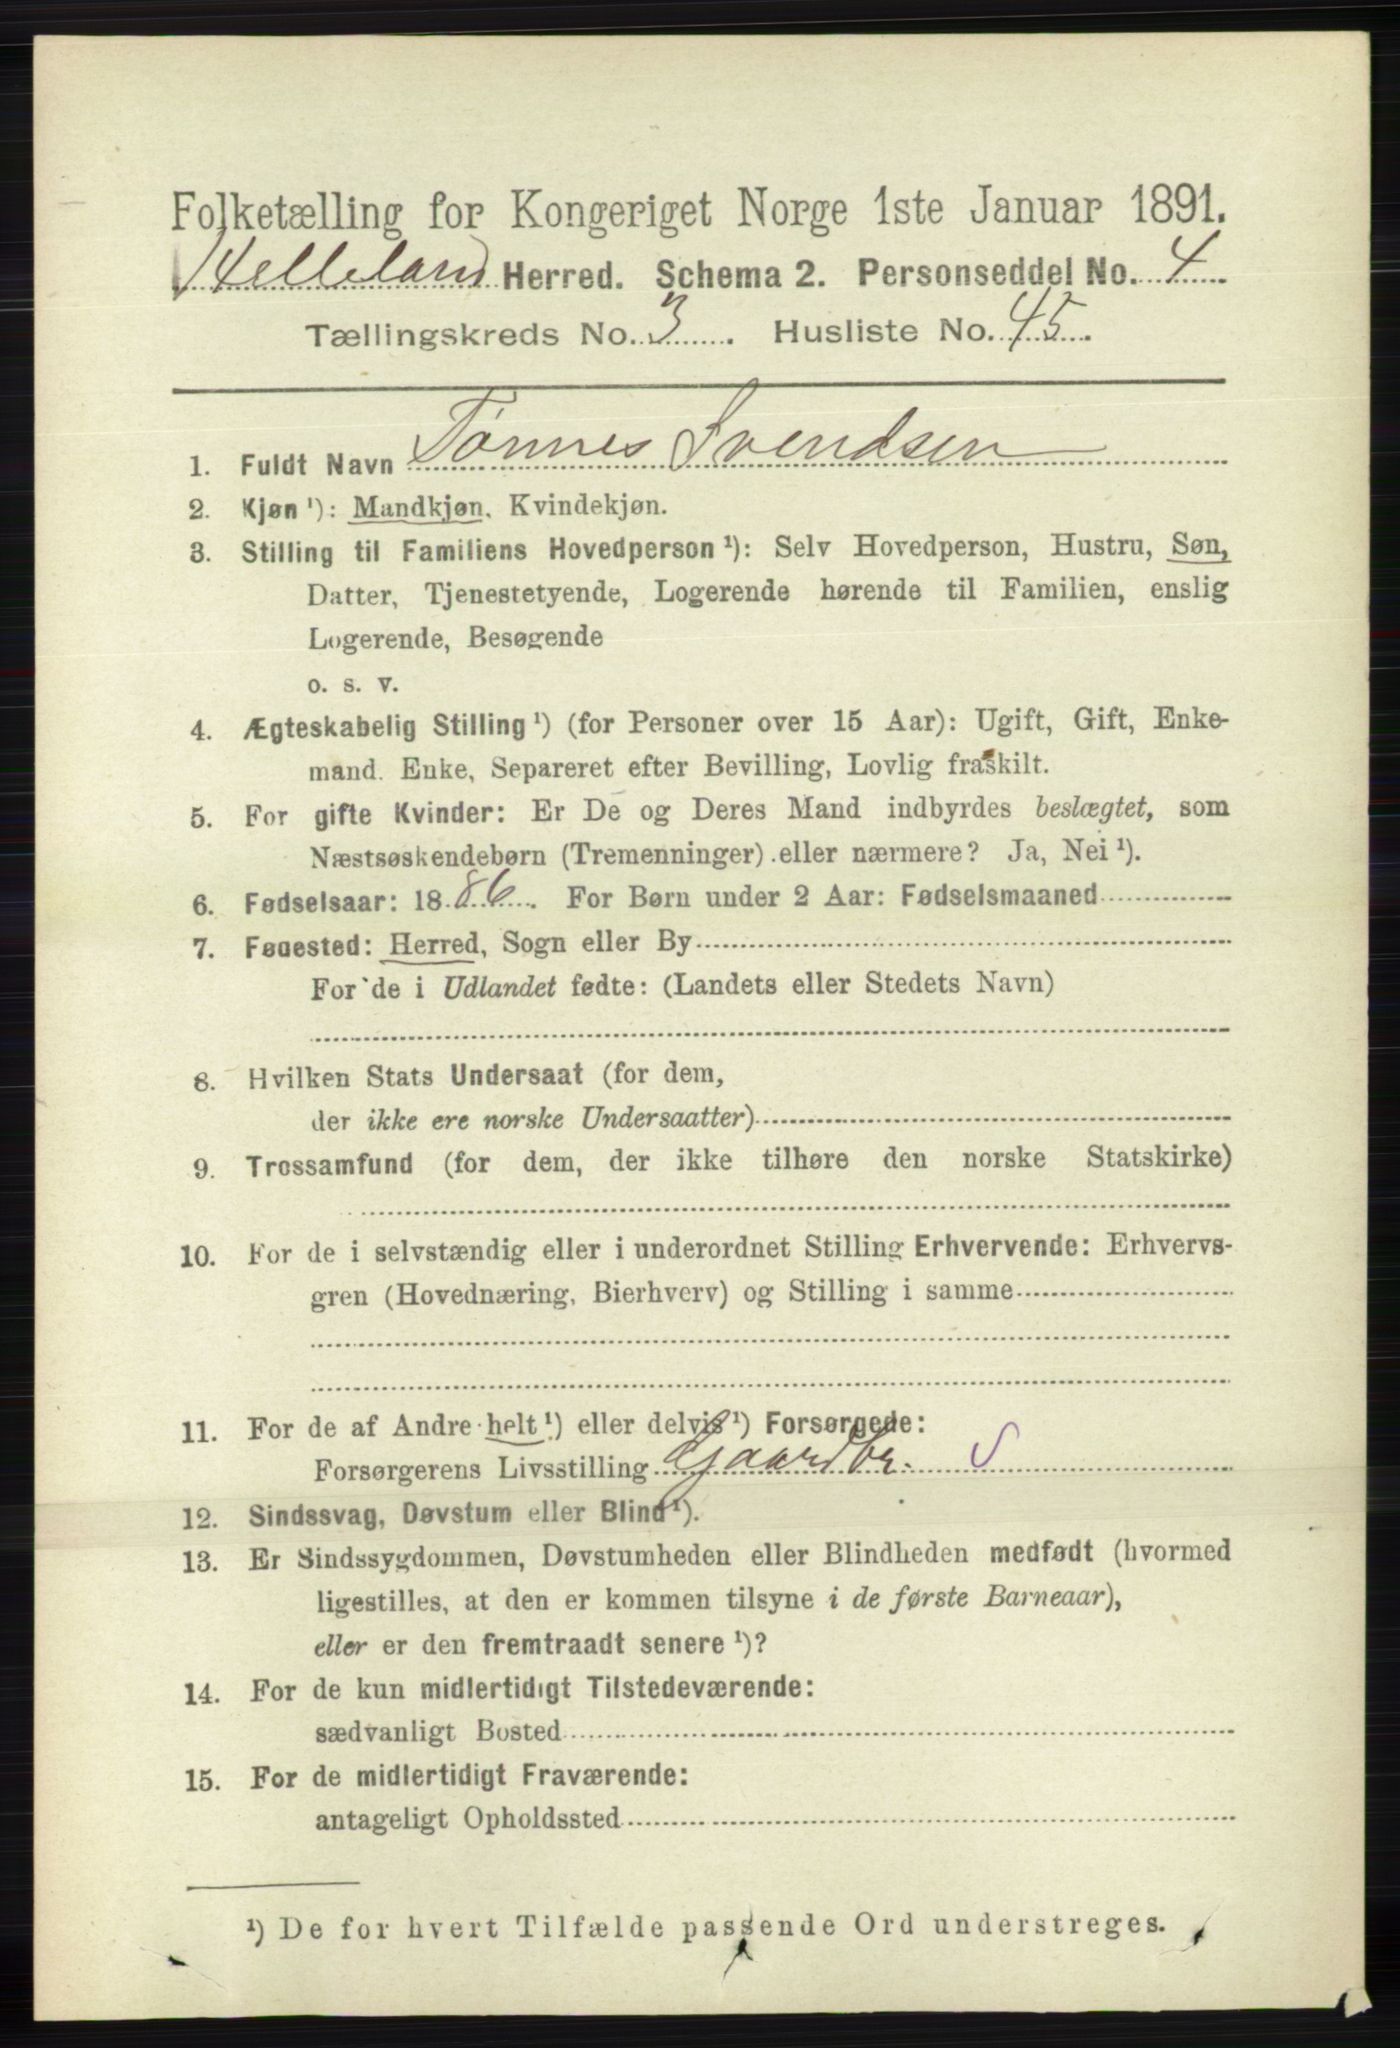 Folketælling for Kongeriget Norge 1ste Januar 1891.
Helleland Herred. Schema 2. Personseddel No. 4
Tællingskreds No. 3. Husliste No. 45.
1. Fuldt Navn Tønnes Svendsen
2. Kjøn ¹): Mandkjøn, Kvindekjøn.
3. Stilling til Familiens Hovedperson ¹): Selv Hovedperson, Hustru, Søn,
Datter, Tjenestetyende, Logerende hørende til Familien, enslig
Logerende, Besøgende
o. s. v.
4. Ægteskabelig Stilling ¹) (for Personer over 15 Aar): Ugift, Gift, Enke-
mand. Enke, Separeret efter Bevilling, Lovlig fraskilt.
5. For gifte Kvinder: Er De og Deres Mand indbyrdes beslægtet, som
Næstsøskendebørn (Tremenninger) eller nærmere? Ja, Nei ¹).
6. Fødselsaar: 1886. For Børn under 2 Aar: Fødselsmaaned
7. Fødested: Herred, Sogn eller By
For de i Udlandet fødte: (Landets eller Stedets Navn)
8. Hvilken Stats Undersaat (for dem,
der ikke ere norske Undersaatter)
9. Trossamfund (for dem, der ikke tilhøre den norske Statskirke)
10. For de i selvstændig eller i underordnet Stilling Erhvervende: Erhvervs-
gren (Hovednæring, Bierhverv) og Stilling i samme
11. For de af Andre helt ¹) eller delvis ¹) Forsørgede:
Forsørgerens Livsstilling Gaardbr. S
12. Sindssvag, Døvstum eller Blind ¹).
13. Er Sindssygdommen, Døvstumheden eller Blindheden medfødt (hvormed
ligestilles, at den er kommen tilsyne i de første Barneaar),
eller er den fremtraadt senere ¹)?
14. For de kun midlertidigt Tilstedeværende:
sædvanligt Bosted
15. For de midlertidigt Fraværende:
antageligt Opholdssted
¹) De for hvert Tilfælde passende Ord understreges.